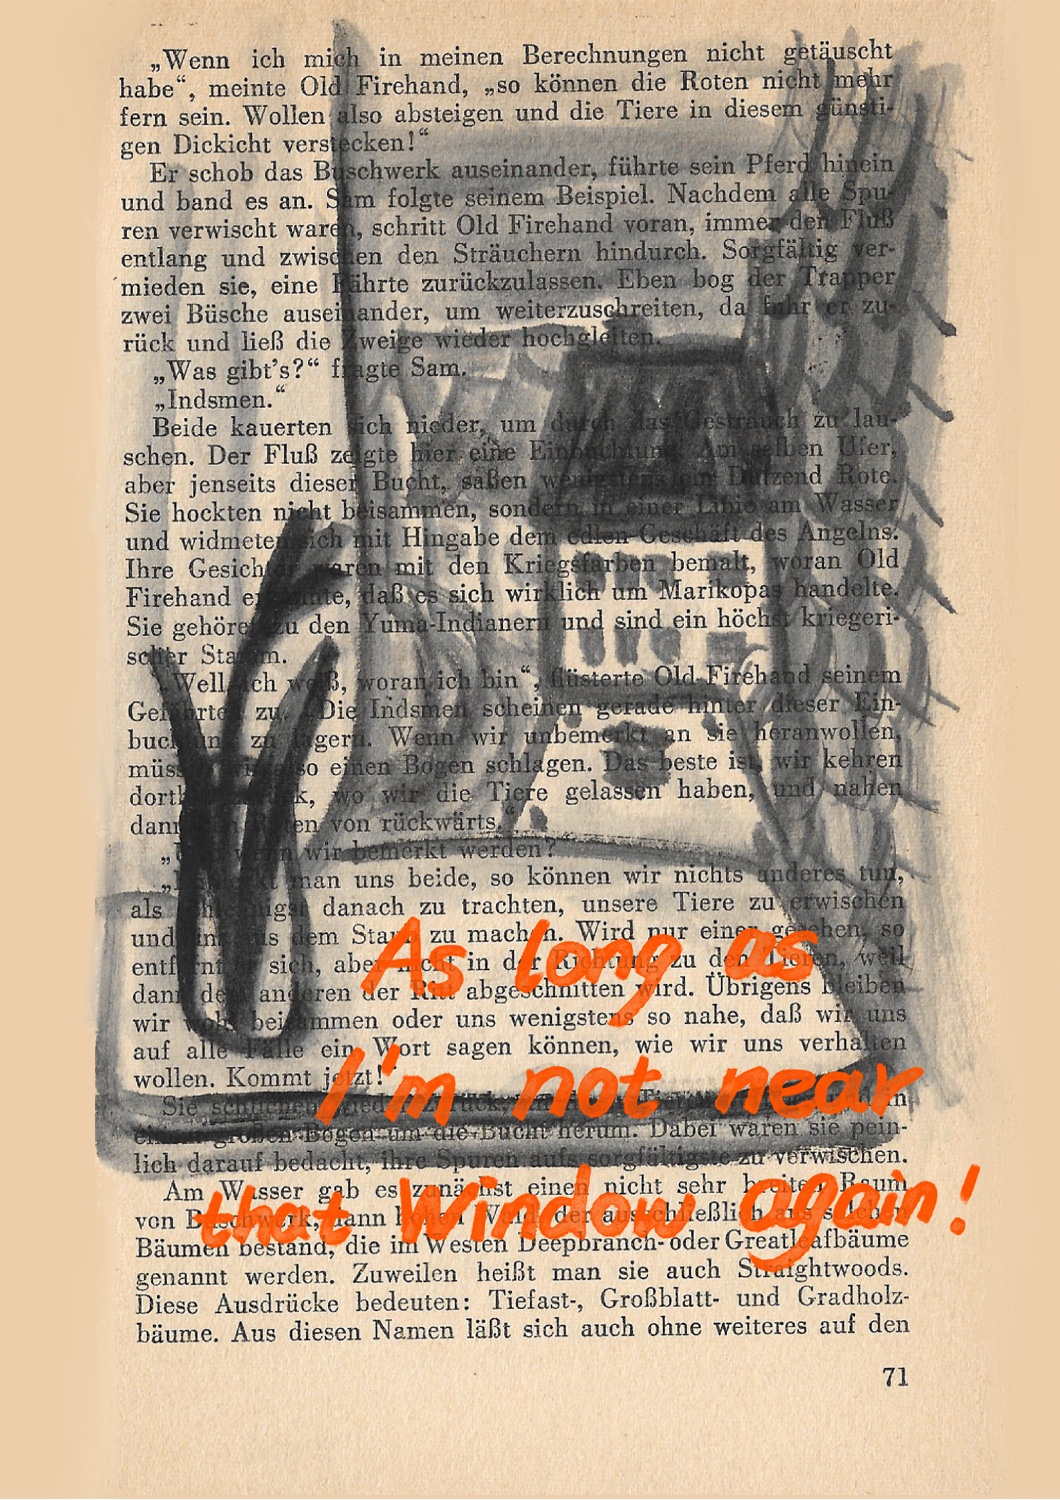 „Wenn ich mich in meinen Berechnungen nicht getäuscht
habe“, meinte Old Firehand, „so können die Roten nicht mehr
fern sein. Wollen also absteigen und die Tiere in diesem günsti-
gen Dickicht verstecken!“
Er schob das Buschwerk auseinander, führte sein Pferd hinein
und band es an. Sam folgte seinem Beispiel. Nachdem alle Spu-
ren verwischt waren, schritt Old Firehand voran, immer den Fluß
entlang und zwischen den Sträuchern hindurch. Sorgfältig ver-
mieden sie, eine Fährte zurückzulassen. Eben bog der Trapper
zwei Büsche auseinander, um weiterzuschreiten, da fuhr er zu-
rück und ließ die Zweige wieder hochgleiten.
„Was gibt's?“ fragte Sam.
„Indsmen.“
Beide kauerten sich nieder, um durch das Gesträuch zu lau-
schen. Der Fluß zeigte hier eine Einbuchtung. Am selben Ufer,
aber jenseits dieser Bucht, saßen wenigstens ein Dutzend Rote.
Sie hockten nicht beisammen, sondern in einer Linie am Wasser
und widmeten sich mit Hingabe dem edlen Geschäft des Angelns.
Ihre Gesichter waren mit den Kriegsfarben bemalt, woran Old
Firehand erkannte, daß es sich wirklich um Marikopas handelte.
Sie gehören zu den Yuma-Indianern und sind ein höchst kriegeri-
scher Stamm.
„Well, ich weiß, woran ich bin“, flüsterte Old Firehand seinem
Gefährten zu. „Die Indsmen scheinen gerade hinter dieser Ein-
buchtung zu lagern. Wenn wir unbemerkt an sie heranwollen,
müssen wir also einen Bogen schlagen. Das beste ist, wir kehren
dorthin zurück, wo wir die Tiere gelassen haben, und nahen
dann den Roten von rückwärts.“
„Und wenn wir bemerkt werden?“
man uns beide, so können wir nichts anderes tun,
als schleunigst danach zu trachten, unsere Tiere zu erwischen
und uns aus dem Staub zu machen. Wird nur einer gesehen, so
entfernt er sich, aber nicht in der Richtung zu den Tieren, weil
dann dem anderen der Ritt abgeschnitten wird. Übrigens bleiben
wir wohl beisammen oder uns wenigstens so nahe, daß wir uns
auf alle Fälle ein Wort sagen können, wie wir uns verhalten
wollen. Kommt jetzt!“
Sie schlichen
einen großen Bogen um die Bucht herum. Dabei waren sie pein-
lich darauf bedacht, ihre Spuren aufs sorgfältigste zu verwischen.
Am Wasser gab es zunächst einen nicht sehr breiten Raum
von Buschwerk, dann hohen Wald, der ausschließlich aus solchen
Bäumen bestand, die im Westen Deepbranch- oder Greatleafbäume
genannt werden. Zuweilen heißt man sie auch Straightwoods.
Diese Ausdrücke bedeuten: Tiefast-, Großblatt- und Gradholz-
bäume. Aus diesen Namen läßt sich auch ohne weiteres auf den
71
As long as
I'm not near
that Window again!